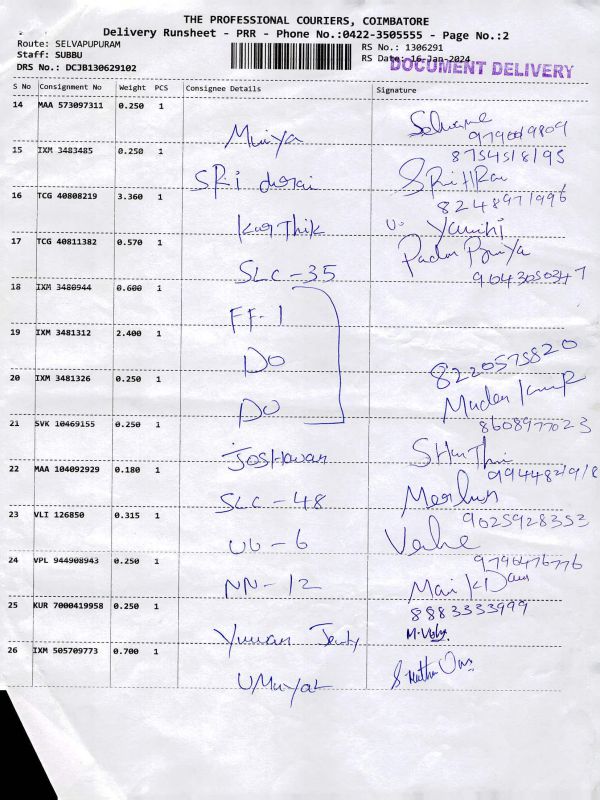 THE PROFESSIONAL COURIERS, COIMBATORE
Delivery Runsheet - PRR - Phone No.:0422-3505555 - Page No.:2
Route: SELVAPUPURAM
Staff: SUBBU
DRS No.: DCJB130629102
RS No.: 1306291
RS Date: 16-Jan-2024
DOCUMENT DELIVERY
S No Consignment No Weight PCS Consignee Details Signature
14 MAA 573097311 0.250 1
15 IXM 3483485 0.250 1
8754518195
SRi durai
16 TCG 40808219 3.360 1
8248971996
Karthik
17 TCG 40811382 0.570 1
SLC-35
9043050347
18 IXM 3480944 0.600 1
FF-1
19 IXM 3481312 2.400 1
DO
8220575820
20 IXM 3481326 0.250 1
DO
21 SVK 10469155 0.250 1
8608977023
22 MAA 104092929 0.180 1
SLC-48
23 VLI 126850 0.315 1
9025928353
UU-6
24 VPL 944908943 0.250 1
9796476776
NN-12
25 KUR 7000419958 0.250 1
8883333999
26 IXM 505709773 0.700 1
UMayaL